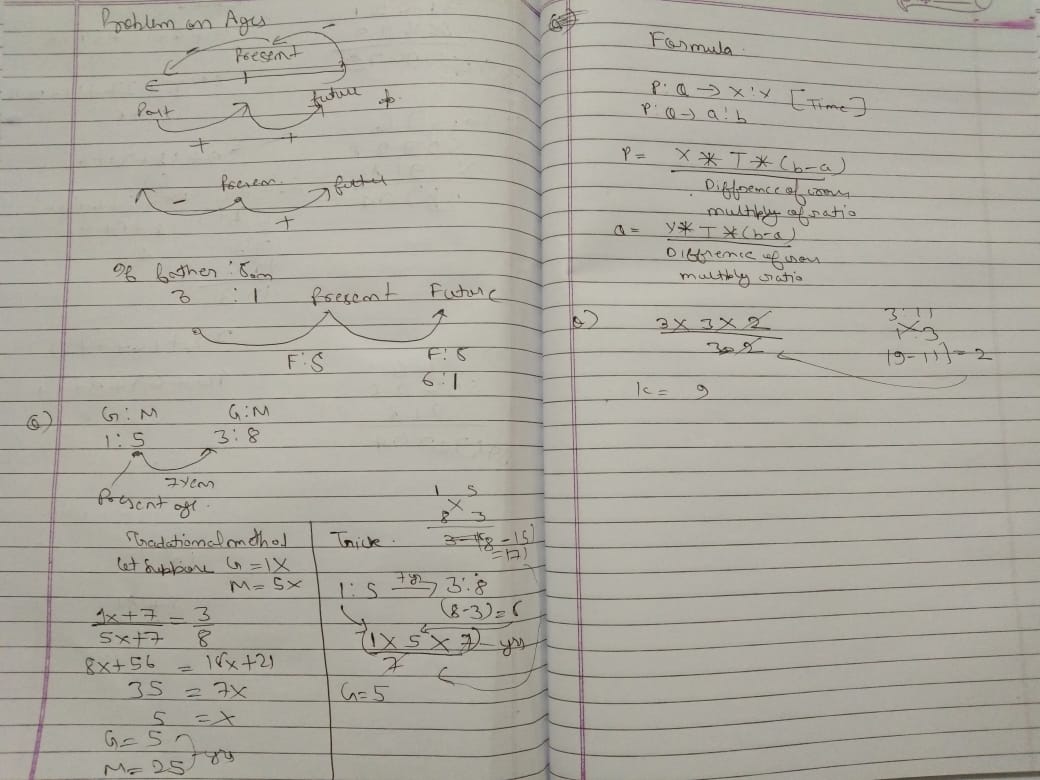 Problem on Ages
Present
Past future
+ +
Presen. futur
- +
Of father : Son
3 : 1 Present Future
F:S F:S
6:1
Q) G:M G:M
1:5 3:8
7 year
Present age.
Tradational method
let Suppose G = 1X
M = 5X
1x+7 = 3
5x+7 8
8x+56 = 15x+21
35 = 7x
5 = x
G = 5
M = 25 } yrs
Trick.
1 5
X
8 3
(8-15)
= (7)
1:5 7yr → 3:8
(8-3) = 5
(1 x 5 x 7) yrs
7
G = 5
Formula.
P:Q → X:Y [Time]
P:Q → a:b
P = X * T * (b-a)
Difference of cross
multiply of ratio
Q = Y * T * (b-a)
Diffrence of cross
multiply ratio
Q) 3 x 3 x 2
2
3 : 11
X
1 : 3
(9-11) = 2
K = 9